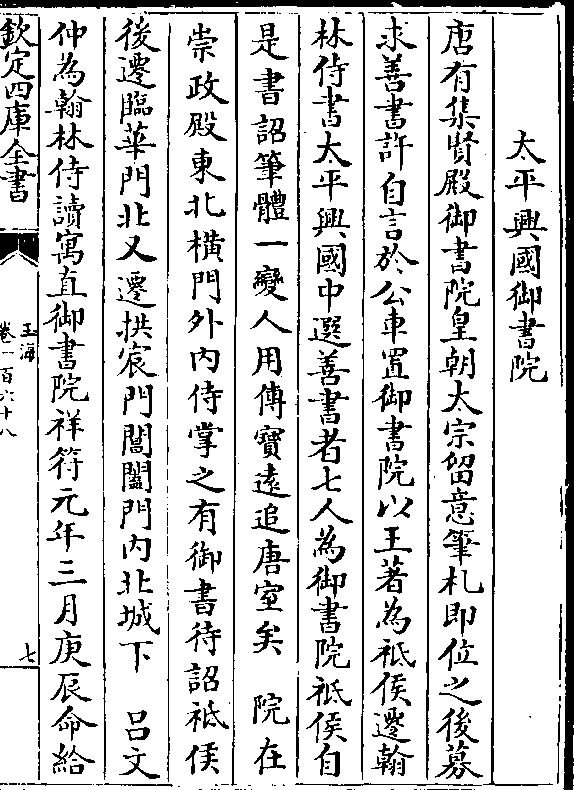 太平興國御書院
唐有集賢殿御書院皇朝太宗留意筆札即位之後募
求善書許自言於公車置御書院以王著為祗侯遷翰
林侍書太平興國中選善書者七人為御書院祗侯自
是書詔筆體一變人用傳寶遠追唐室矣　院在
崇政殿東北橫門外内侍掌之有御書待詔祗侯
後遷臨華門北又遷拱宸門閶闔門内北城下　吕文
仲為翰林侍讀寓直御書院祥符元年三月庚辰命給
欽定四庫全書
玉海
卷一百六十八
七